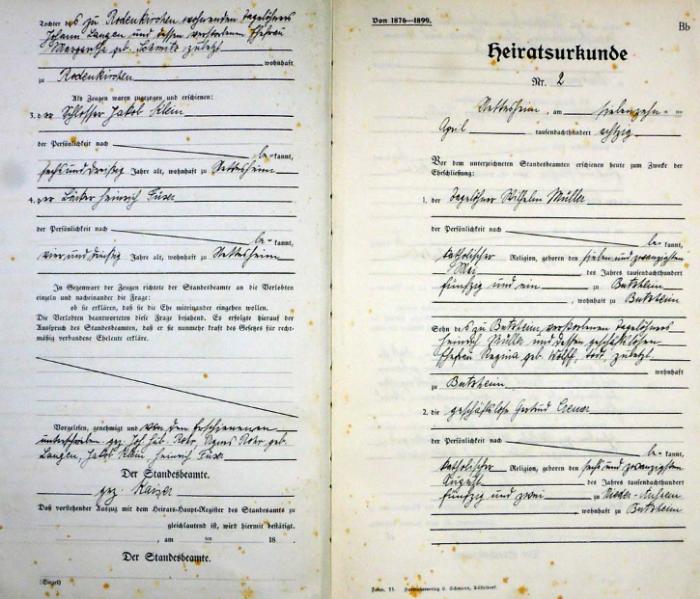 Tochter des zu Rodenkirchen wohnenden Tagelöhners
Johann Langen und dessen verstorbenen Ehefrau
Margaretha geb. zuletzt
wohnhaft
zu Rodenkirchen
Als Zeugen waren zugezogen und erschienen:
3. der Schlosser Jakob Klein
der Persönlichkeit nach
be-kannt,
sechs und dreißig Jahre alt, wohnhaft zu Nettesheim
4. der Bäcker Heinrich Füser
der Persönlichkeit nach
be-kannt,
vier und dreißig Jahre alt, wohnhaft zu Nettesheim
In Gegenwart der Zeugen richtete der Standesbeamte an die Verlobten
einzeln und nacheinander die Frage:
ob sie erklären, daß sie die Ehe miteinander eingehen wollen.
Die Verlobten beantworteten diese Frage bejahend. Es erfolgte hierauf der
Ausspruch des Standesbeamten, daß er sie nunmehr kraft des Gesetzes für recht-
mäßig verbundene Eheleute erkläre.
Vorgelesen, genehmigt und von den Erschienenen
unterschrieben gez. Joh. Rohr, Agnes Rohr geb.
Langen, Jakob Klein, Heinrich Füser
Der Standesbeamte.
gez. Kaiser
Daß vorstehender Auszug mit dem Heirats-Haupt-Register des Standesamts zu
gleichlautend ist, wird hiermit bestätigt.
, am ten 18
Der Standesbeamte.
(Siegel)
Von 1876—1899.
Bb
Heiratsurkunde
Nr. 2
Nettesheim, am siebenzehn
April tausendachthundert achtzig
Vor dem unterzeichneten Standesbeamten erschienen heute zum Zwecke der
Eheschließung:
1. der Tagelöhner Wilhelm Müller
der Persönlichkeit nach
be-kannt,
katholischer Religion, geboren den sieben und zwanzigsten
Mai des Jahres tausendachthundert
fünfzig und ein zu Butzheim
, wohnhaft zu Butzheim
Sohn des zu Butzheim verstorbenen Tagelöhners
Heinrich Müller und dessen geschäftslosen
Ehefrau Regina geb. Wolff, zuletzt
wohnhaft
zu Butzheim
2. die geschäftslose Gertrud Cremer
der Persönlichkeit nach
be-kannt,
katholischer Religion, geboren den sechs und zwanzigsten
August des Jahres tausendachthundert
fünfzig und zwei zu Nieder-Außem
, wohnhaft zu Butzheim